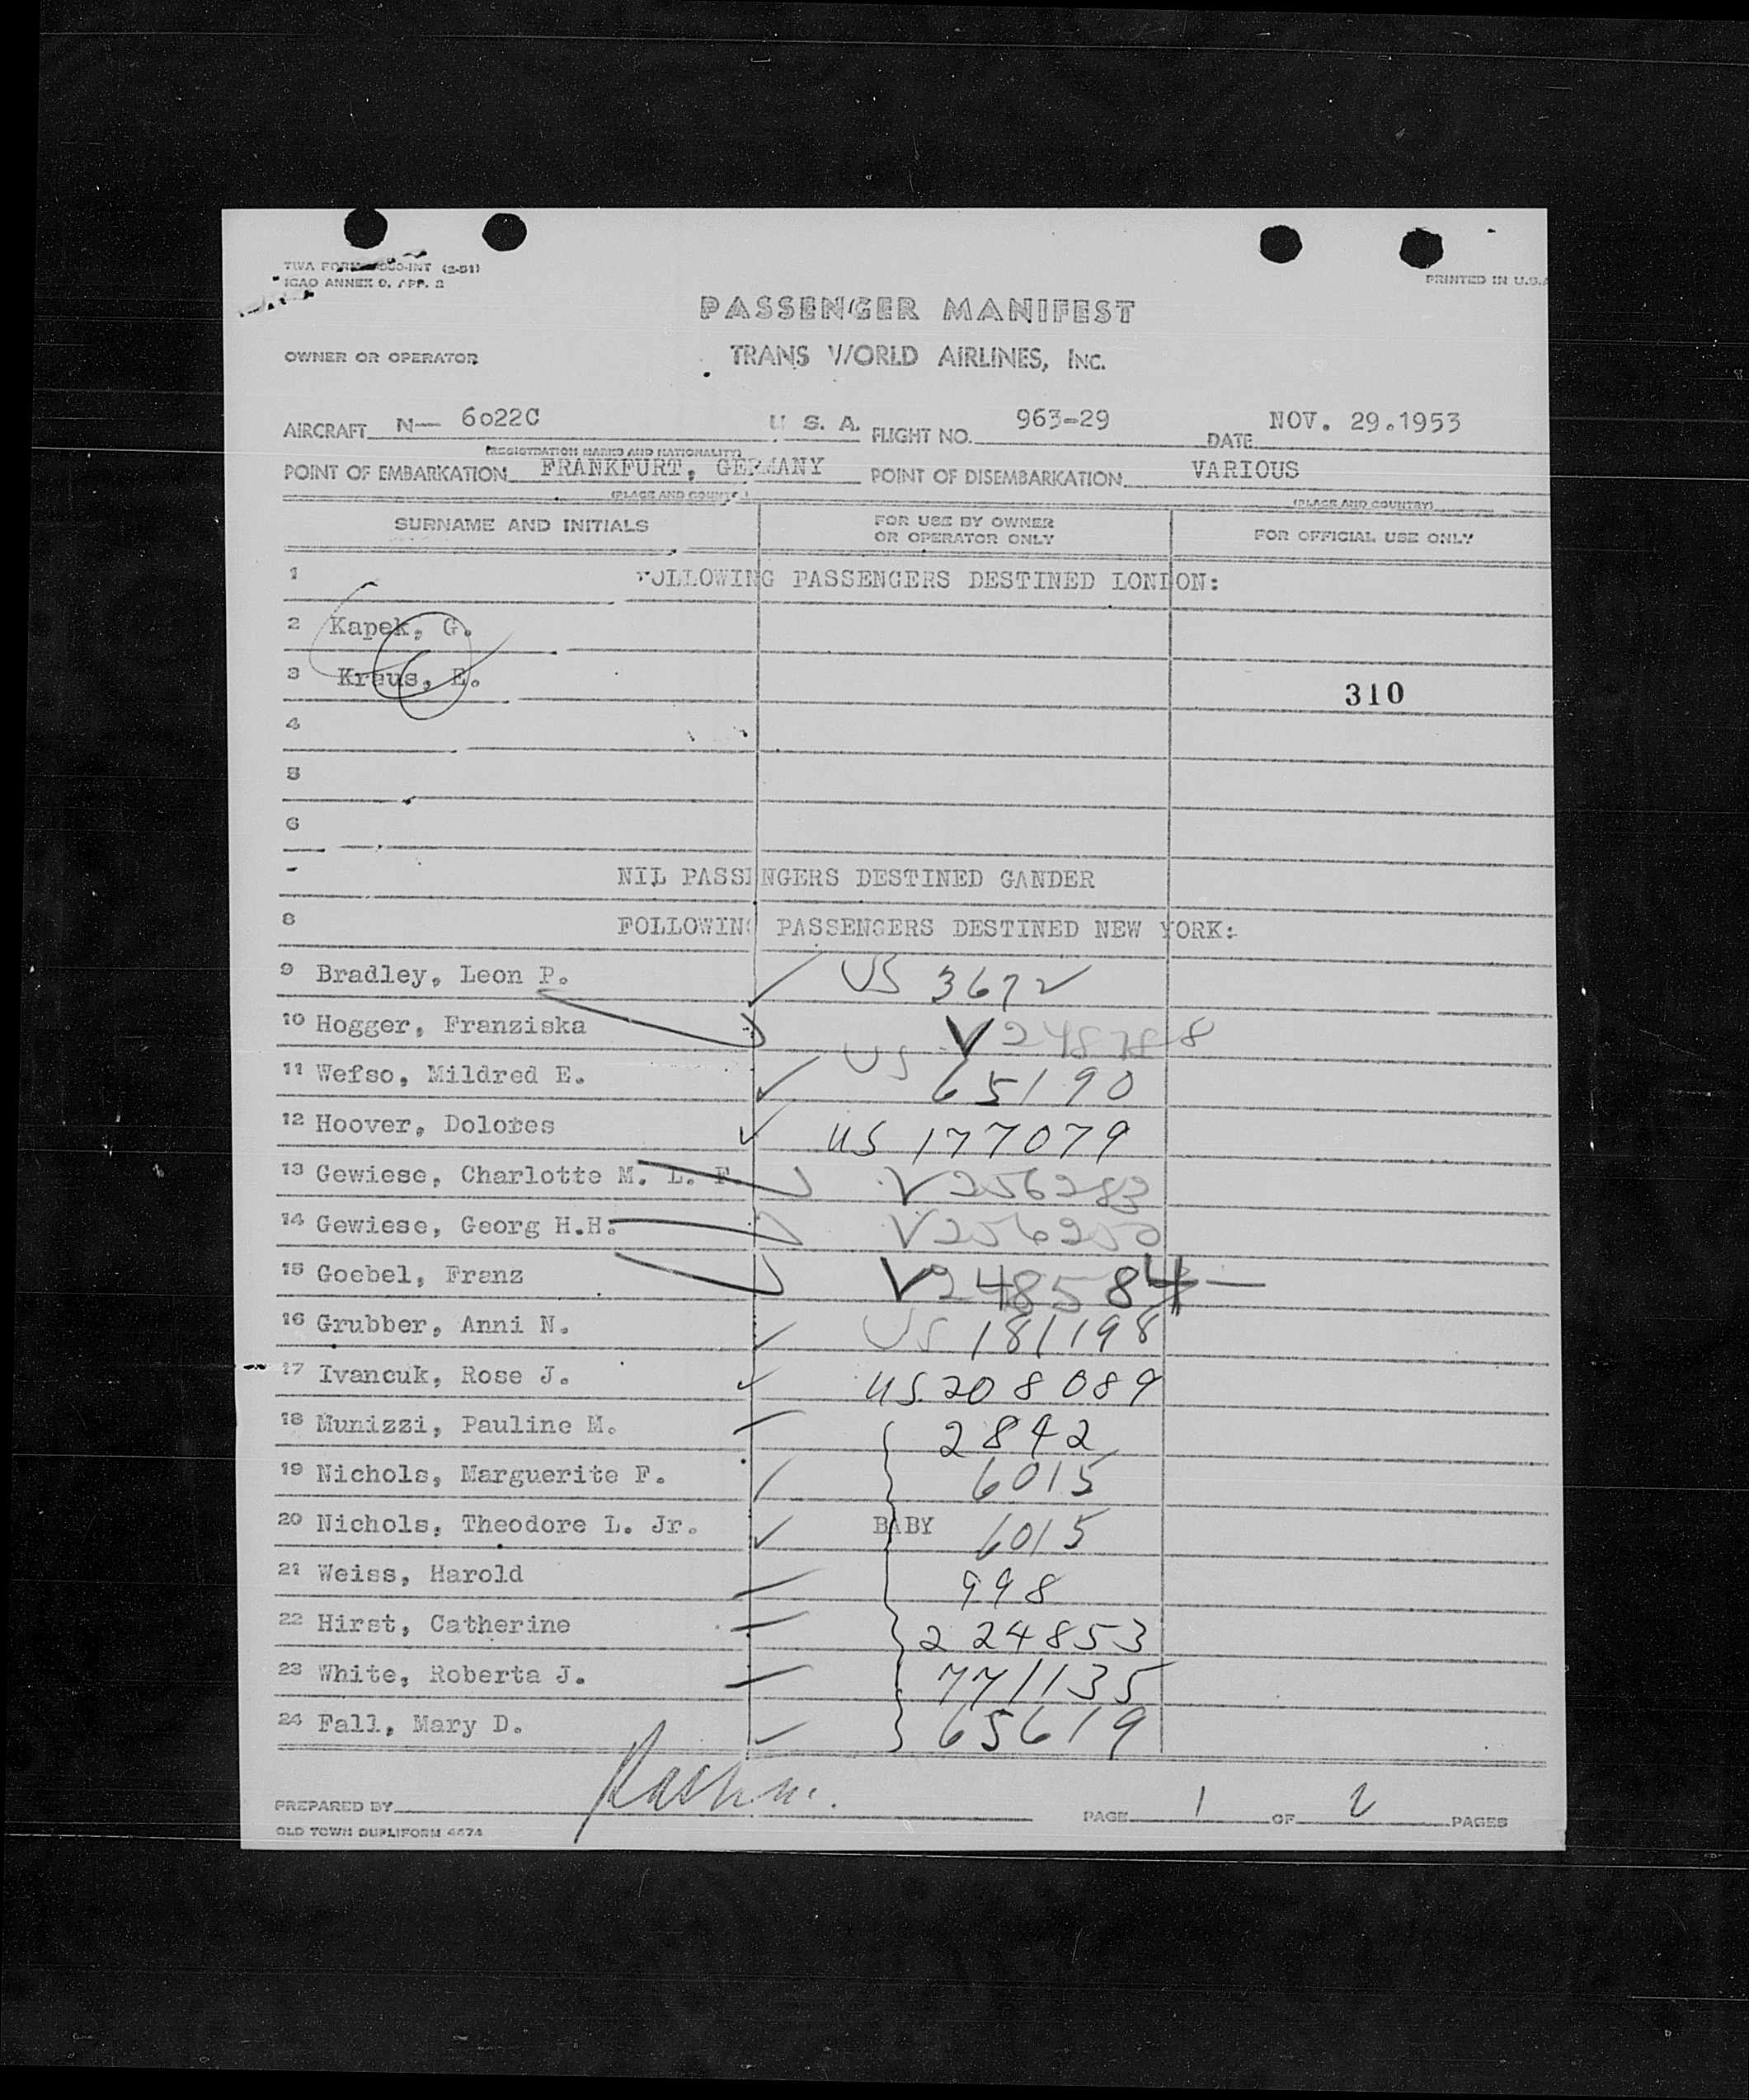 TWA FORM -INT (2-51)
ICAO ANNEX 9, APP. 2
PRINTED IN U.S.A
PASSENGER MANIFEST
OWNER OR OPERATOR TRANS WORLD AIRLINES, INC.
AIRCRAFT N— 6022C U S. A. FLIGHT NO. 963-29 DATE NOV. 29.1953
(REGISTRATION MARKS AND NATIONALITY)
POINT OF EMBARKATION FRANKFURT, GERMANY POINT OF DISEMBARKATION VARIOUS
(PLACE AND COUNTRY) (PLACE AND COUNTRY)
SURNAME AND INITIALS FOR USE BY OWNER OR OPERATOR ONLY FOR OFFICIAL USE ONLY
1 FOLLOWING PASSENGERS DESTINED LONDON:
2 Kapek, G.
3 Kreus, E. 310
4
5
6
NIL PASSENGERS DESTINED GANDER
8 FOLLOWING PASSENGERS DESTINED NEW YORK:
9 Bradley, Leon P. ✓ US 3672
10 Hogger, Franziska V248788
11 Wefso, Mildred E. ✓ US 65190
12 Hoover, Dolores ✓ US 177079
13 Gewiese, Charlotte M. L. F. V256283
14 Gewiese, Georg H.H.
15 Goebel, Franz V248584 —
16 Grubber, Anni N. ✓ US 181198
17 Ivancuk, Rose J. ✓ US 208089
18 Munizzi, Pauline M. 2842
19 Nichols, Marguerite F. 6015
20 Nichols, Theodore L. Jr. ✓ BABY 6015
21 Weiss, Harold 998
22 Hirst, Catherine 224853
23 White, Roberta J. 771135
24 Fall, Mary D. ✓ 65619
PREPARED BY PAGE 1 OF 2 PAGES
OLD TOWN DUPLIFORM 4474